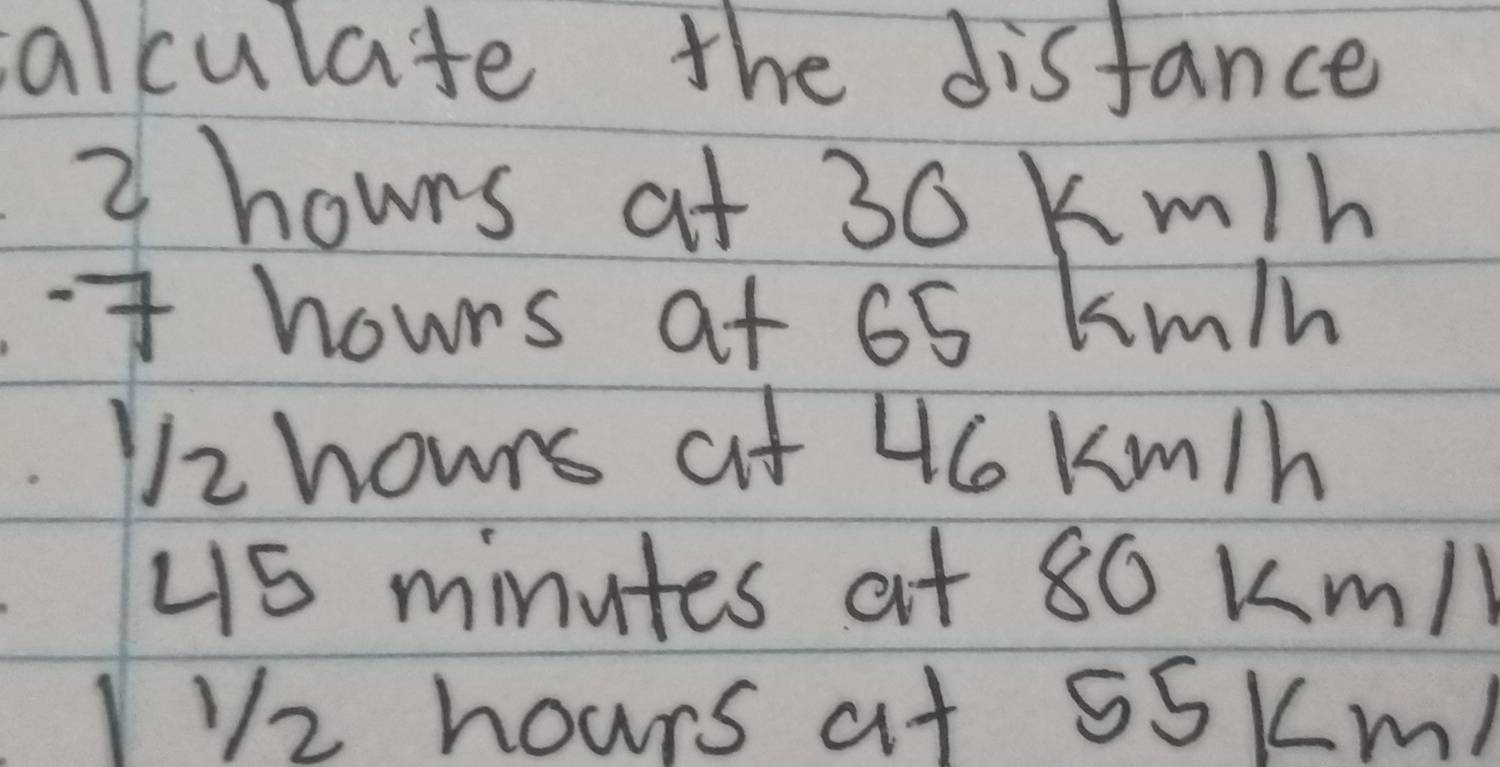 calculate the distance
. 2 hours at 30 km/h
. -7 hours at 65 km/h
. 1/2 hours at 46 km/h
. 45 minutes at 80 km/h
. 1 1/2 hours at 55 km/